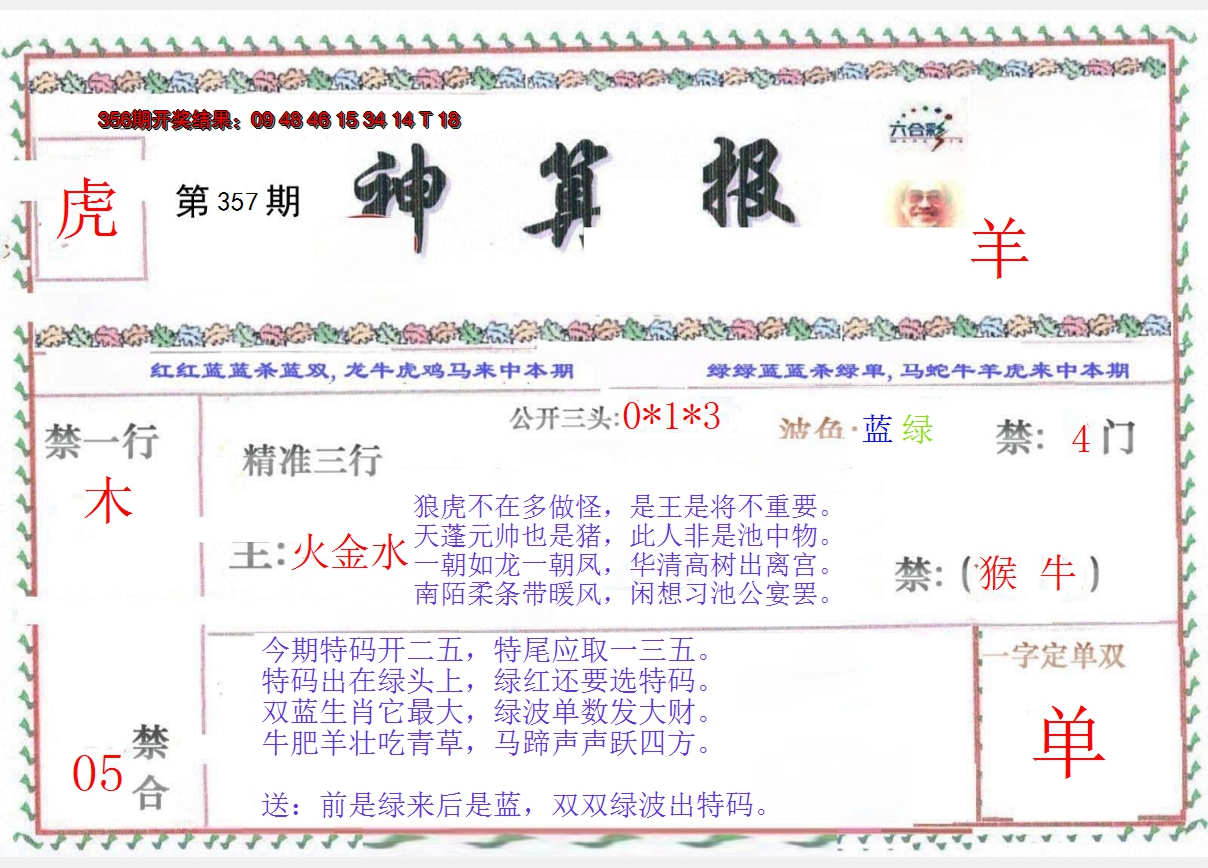 356期开奖结果：09 48 46 15 34 14 T 18
六合彩
虎
第 357 期
神算报
羊
红红蓝蓝杀蓝双，龙牛虎鸡马来中本期
绿绿蓝蓝杀绿单，马蛇牛羊虎来中本期
禁一行
木
精准三行
公开三头:0*1*3
波色:蓝 绿
禁: 4门
主:火金水
狼虎不在多做怪，是王是将不重要。
天蓬元帅也是猪，此人非是池中物。
一朝如龙一朝凤，华清高树出离宫。
南陌柔条带暖风，闲想习池公宴罢。
禁:(猴 牛)
今期特码开二五，特尾应取一三五。
特码出在绿头上，绿红还要选特码。
双蓝生肖它最大，绿波单数发大财。
牛肥羊壮吃青草，马蹄声声跃四方。
送：前是绿来后是蓝，双双绿波出特码。
05
禁合
一字定单双
单